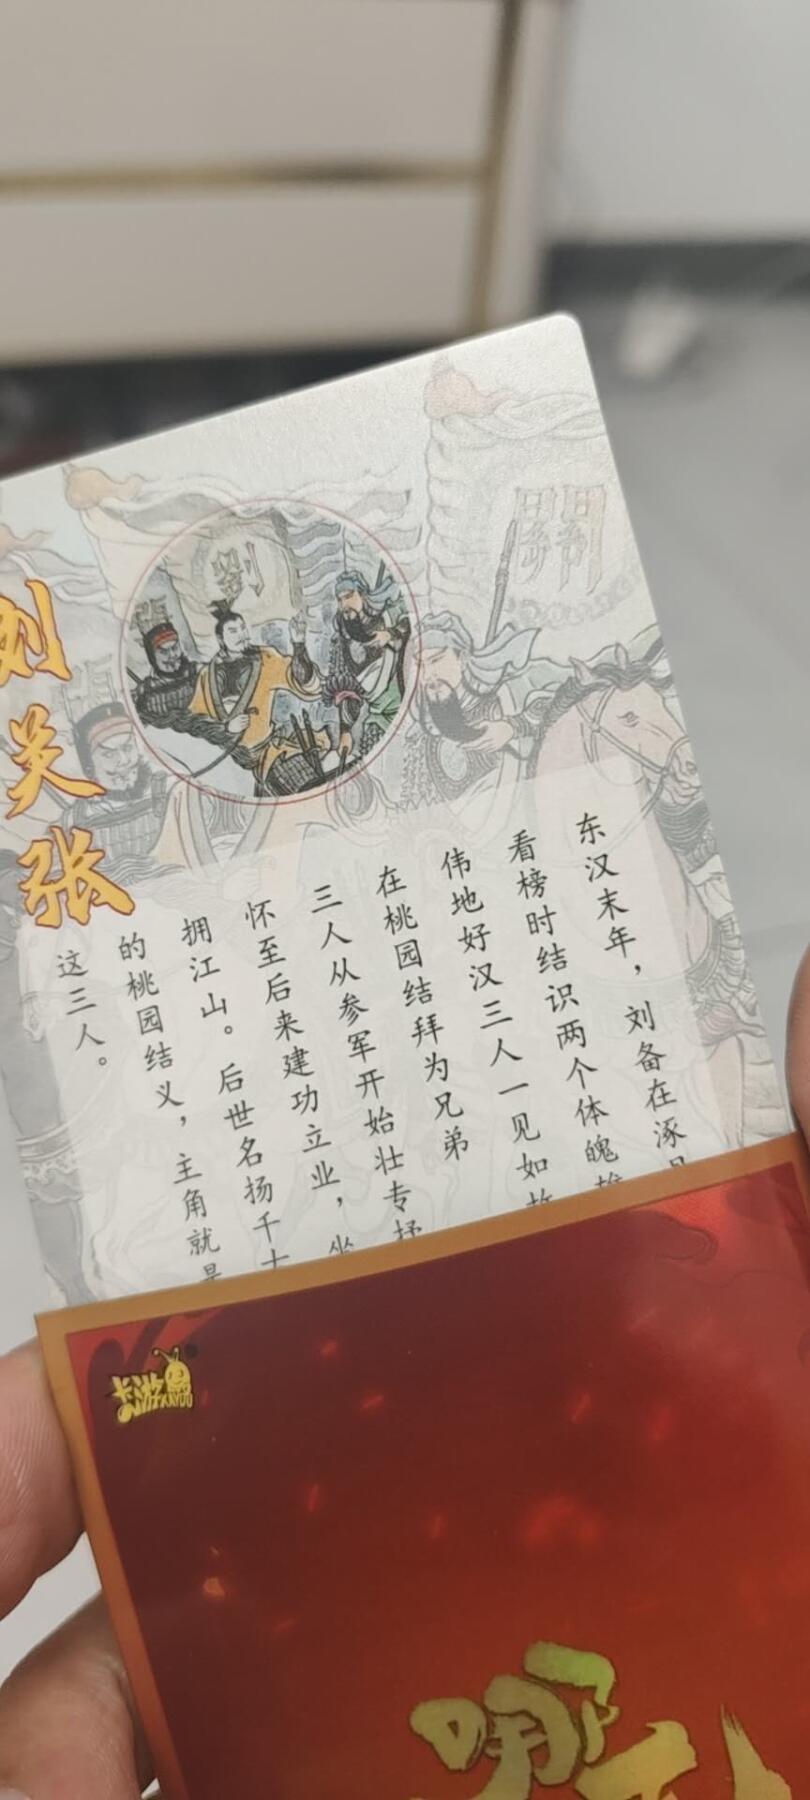 刘关张
劉
關
張
東汉末年，刘备在涿
看榜时结识两个体魄
伟地好汉三人一见如故
在桃园结拜为兄弟
三人从参军开始壮专抒
怀至后来建功立业，坐
拥江山。后世名扬千
的桃园结义，主角就是
这三人。
卡游
KAYOU
哪